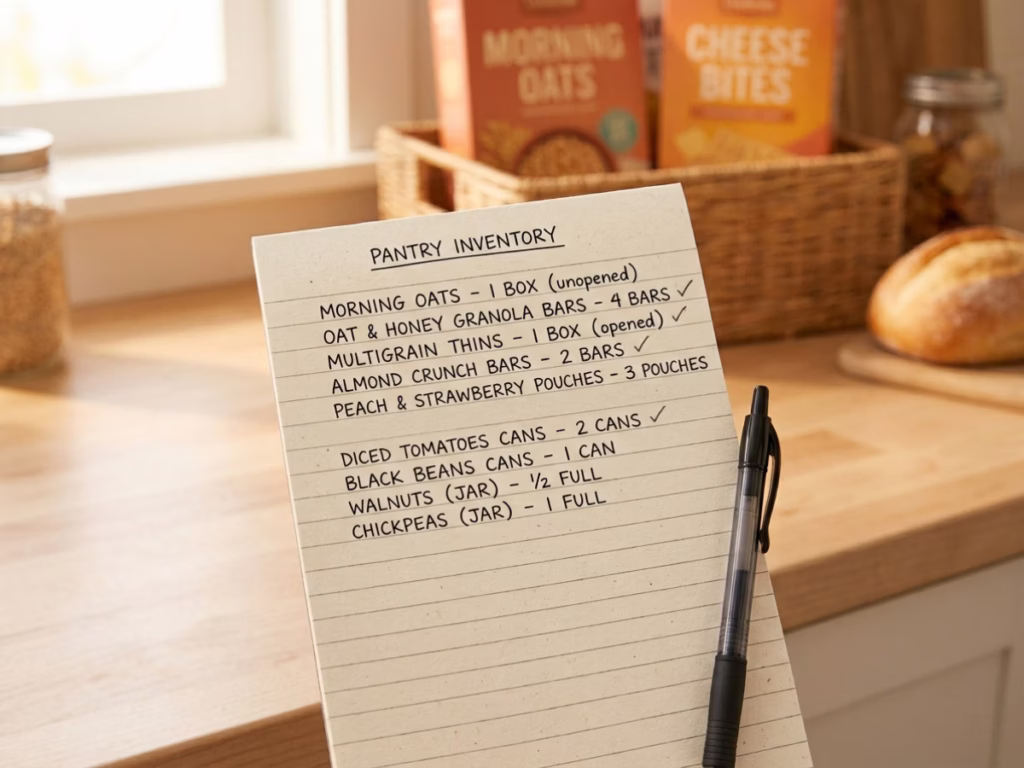 MORNING
OATS
CHEESE
BITES
PANTRY INVENTORY
MORNING OATS - 1 BOX (unopened)
OAT & HONEY GRANOLA BARS - 4 BARS ✓
MULTIGRAIN THINS - 1 BOX (opened) ✓
ALMOND CRUNCH BARS - 2 BARS ✓
PEACH & STRAWBERRY POUCHES - 3 POUCHES
DICED TOMATOES CANS - 2 CANS ✓
BLACK BEANS CANS - 1 CAN
WALNUTS (JAR) - ½ FULL
CHICKPEAS (JAR) - 1 FULL